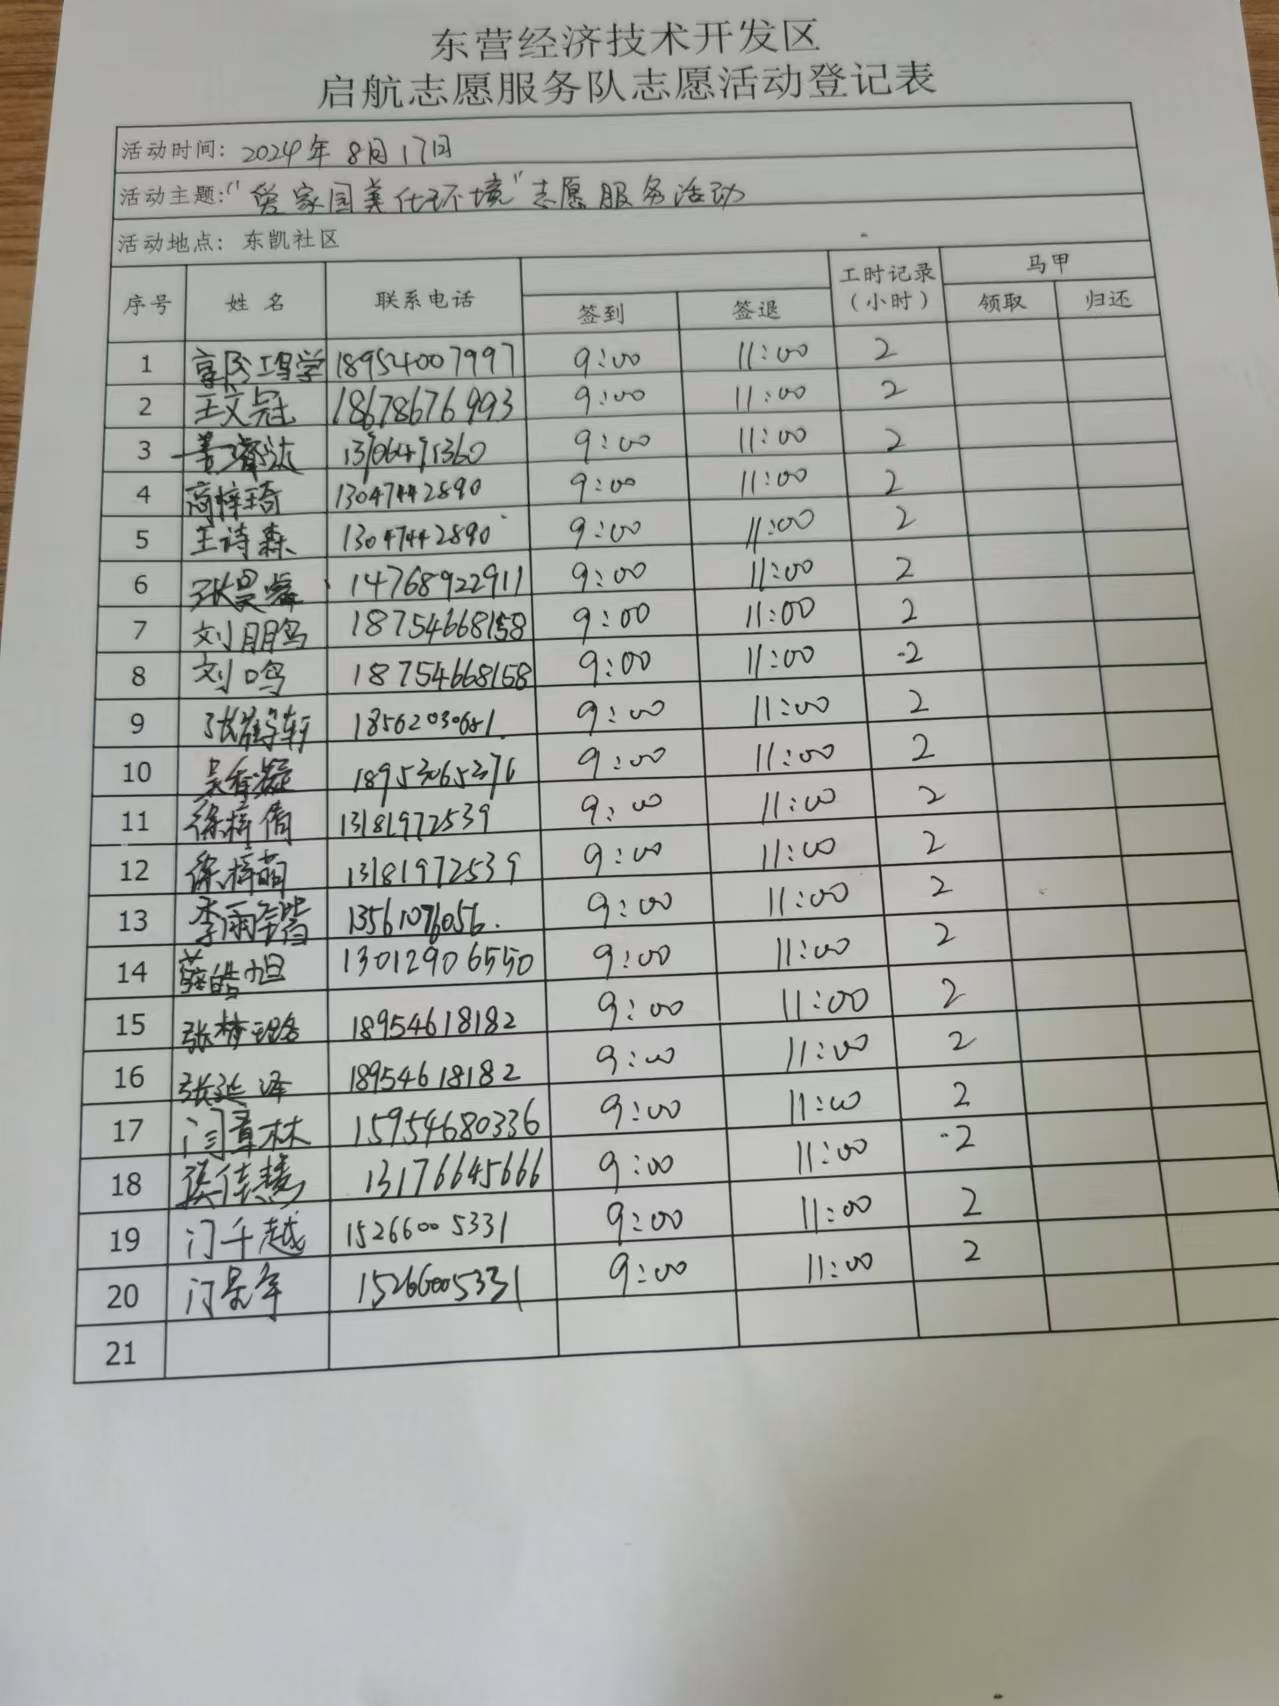 东营经济技术开发区
启航志愿服务队志愿活动登记表
活动时间: 2024年8月17日
活动主题:"爱家园美化环境"志愿服务活动
活动地点: 东凯社区
序号 姓名 联系电话 签到 签退 工时记录(小时) 马甲 领取 归还
1 18954007997 9:00 11:00 2
2 王文冠 18678676993 9:00 11:00 2
3 9:00 11:00 2
4 高梓琦 13047442890 9:00 11:00 2
5 王诗森 13047442890 9:00 11:00 2
6 张昊睿 14768922911 9:00 11:00 2
7 刘朋鸣 18754668158 9:00 11:00 2
8 刘鸣 18754668158 9:00 11:00 2
9 9:00 11:00 2
10 18953065376 9:00 11:00 2
11 徐梓倩 13181972539 9:00 11:00 2
12 徐梓萌 13181972539 9:00 11:00 2
13 9:00 11:00 2
14 薛皓旭 13012906550 9:00 11:00 2
15 张梦璐 18954618182 9:00 11:00 2
16 张延泽 18954618182 9:00 11:00 2
17 闫章林 15954680336 9:00 11:00 2
18 13176645666 9:00 11:00 2
19 门千越 15266005331 9:00 11:00 2
20 门景年 15266005331 9:00 11:00 2
21